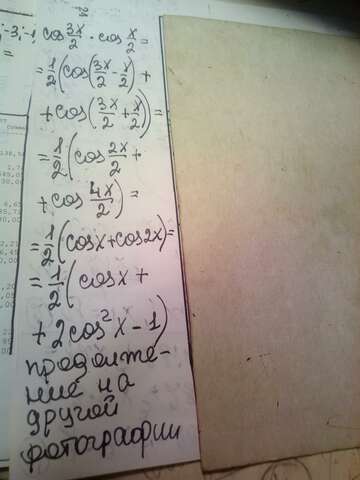 -3,-1, cos 3x/2 · cos x/2 =
= 1/2 (cos(3x/2 - x/2) +
+ cos(3x/2 + x/2)) =
= 1/2 (cos 2x/2 +
+ cos 4x/2) =
= 1/2 (cosx + cos2x) =
= 1/2 ( cosx +
+ 2cos² x - 1)
продолже-
ние на
другой
фотографии